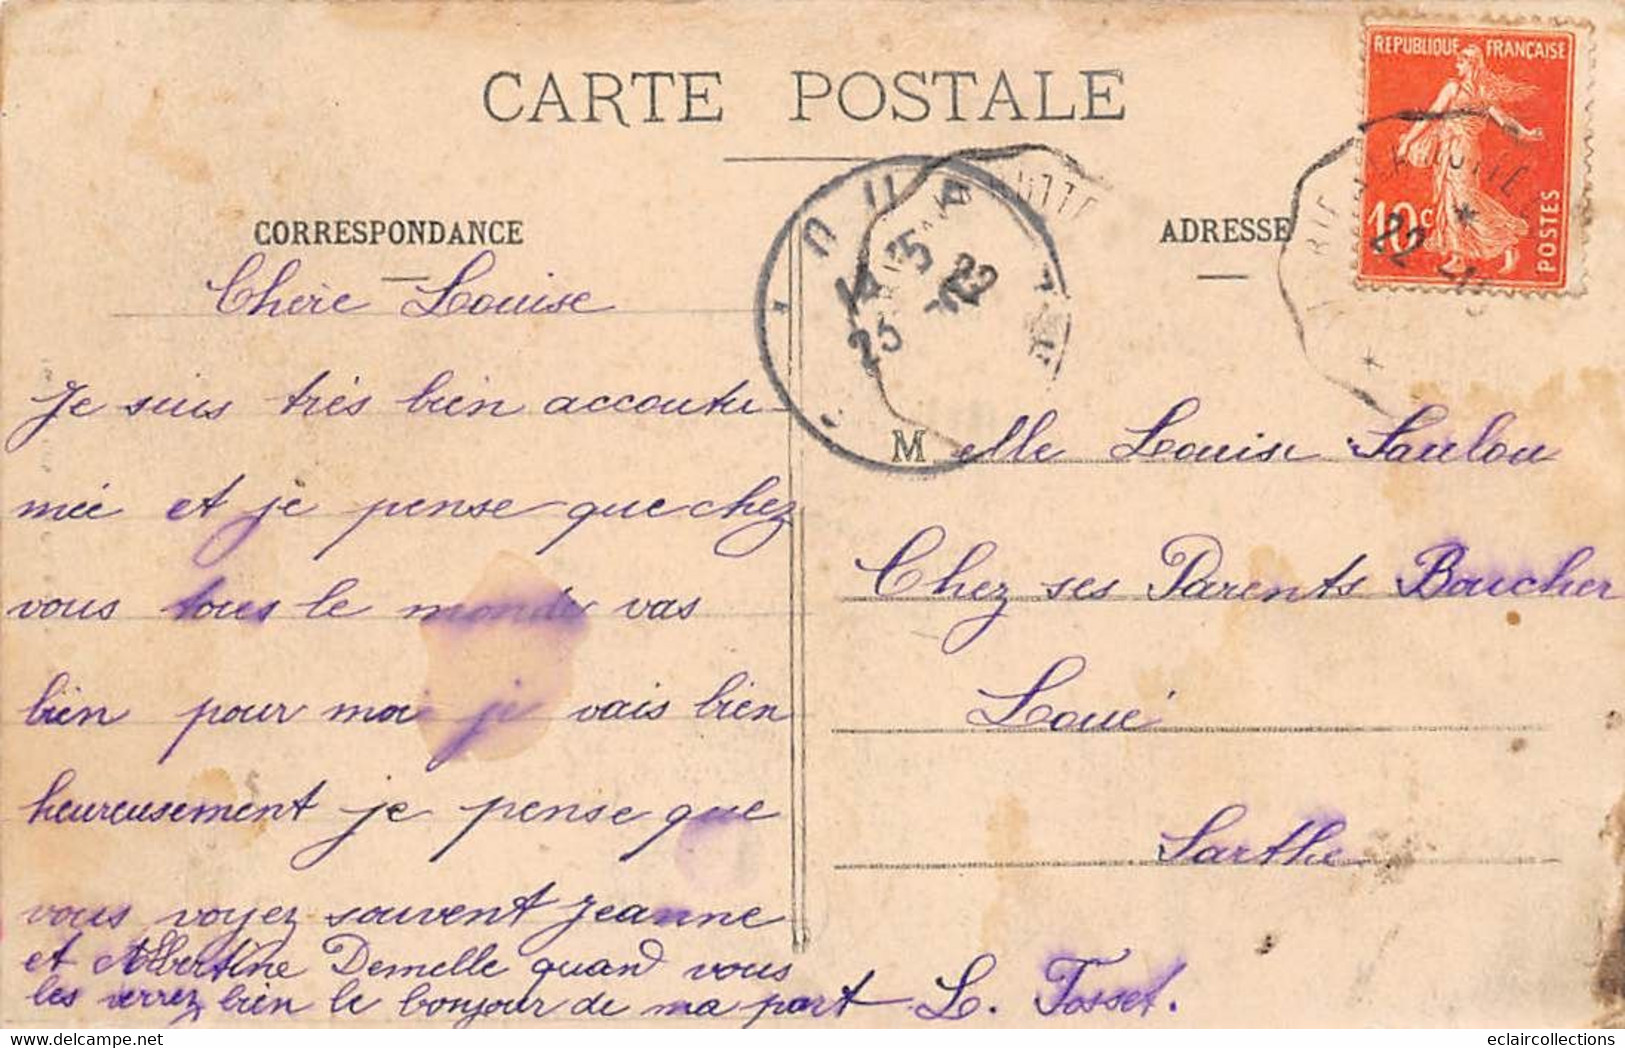 CARTE POSTALE
REPUBLIQUE FRANÇAISE
10c
POSTES
22
CORRESPONDANCE
ADRESSE
LOUÉ
15
23
22
Chère Louise
Je suis très bien accoutu
mée et je pense que chez
vous tous le monde vas
bien pour moi je vais bien
heureusement je pense que
vous voyez souvent Jeanne
et Albertine Demelle quand vous
les verrez bien le bonjour de ma part L. Fosset.
Melle Louise Saulou
Chez ses Parents Boucher
Loué
Sarthe
eclaircollections